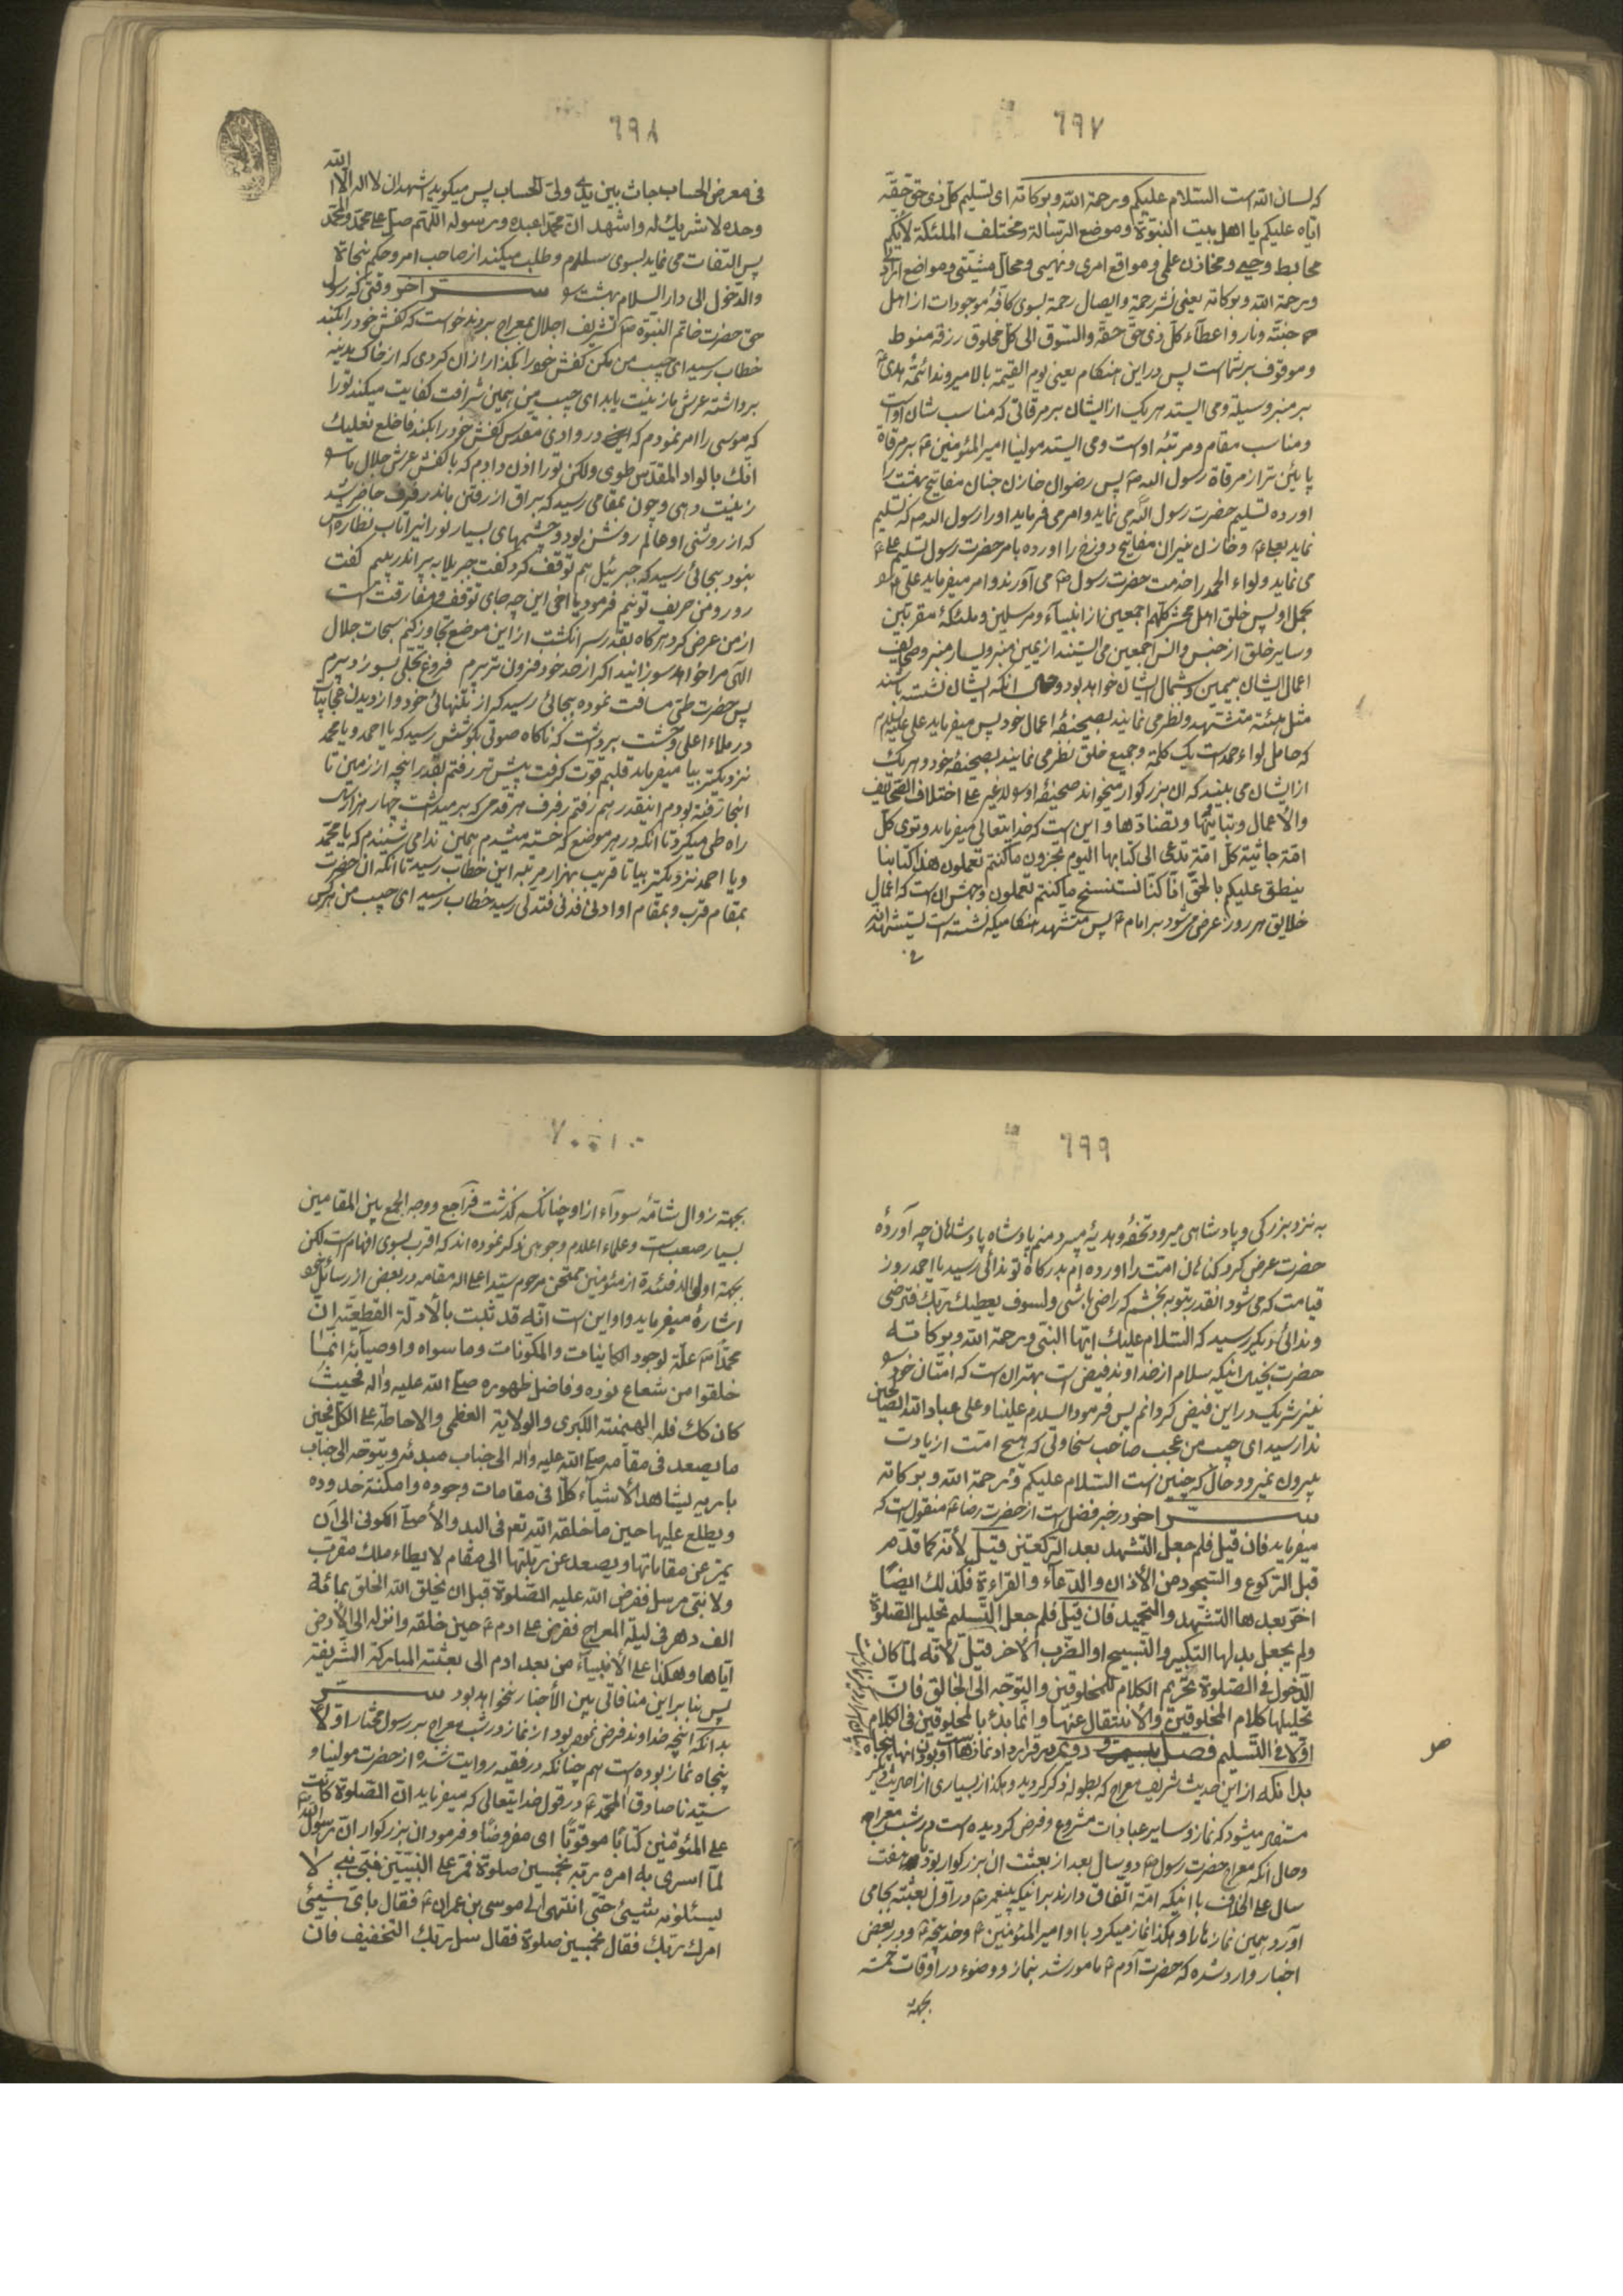 ٦٩٧
که لسان الله است السّلام علیکم ورحمة الله وبرکاته ای تسلیم کلّ ذی حقّ حقّه
ایّاه علیکم یا اهل بیت النبوّة وموضع الرّسالة ومختلف الملئکة لانّکم
مهابط وحیی ومخازن علمی ومواقع امری ونهیی ومحالّ مشیّتی ومواضع
ورحمة الله وبرکاته یعنی نشر رحمة وایصال رحمة بسوی کافّهٔ موجودات از اهل
جنّة ونار واعطآء کلّ ذی حقّ حقّه والسّوق الی کلّ مخلوق رزقه منوط
وموقوف بر شما است پس در این هنکام یعنی یوم القیمة بالا میروند ائمّهٔ هدی ع
بر منبر وسیلة ومی ایستد هر یک از ایشان بر مرقاتی که مناسب شان اوست
ومناسب مقام ومرتبهٔ اوست ومی ایستد مولینا امیر المؤمنین ع بر مرقاة
پائین تر از مرقاة رسول الله ص پس رضوان خازن جنان مفاتیح بهشت را
اورده تسلیم حضرت رسول الله ص می نماید وامر می فرماید اورا رسول الله ص که تسلیم
نماید بعلی ع وخازن نیران مفاتیح دوزخ را اورده بامر حضرت رسول تسلیم علی ع
می نماید ولواء الحمد را خدمت حضرت رسول ص می آورند وامر میفرماید علی را
بحمل او پس خلق اهل محشر کلّهم اجمعین از انبیآء ومرسلین وملئکهٔ مقرّبین
وسایر خلق از جنس وانس اجمعین می ایستند از یمین منبر ویسار منبر وصحایف
اعمال ایشان بیمین وشمال ایشان خواهد بود وحال انکه ایشان نشسته باشند
مثل هیئة متشهّد ونظر می نمایند بصحیفهٔ اعمال خود پس میفرماید علی علیه السلام
که حامل لواء حمد است یک کلمة وجمیع خلق نظر می نمایند بصحیفهٔ خود وهر یک
از ایشان می بینند که ان بزرکوار میخواند صحیفهٔ او لا غیر علی اختلاف الصّحایف
والأعمال وتباینها وتضادّها واین است که خدایتعالی میفرماید وتری کلّ
امّة جاثیة کلّ امّة تدعی الی کتابها الیوم تجزون ما کنتم تعملون هذا کتابنا
ینطق علیکم بالحقّ انّا کنّا نستنسخ ما کنتم تعملون وجهش ان است که اعمال
خلایق هر روز عرض می شود بر امام ع پس متشهد هنکامیکه نشسته است یستشهد الله
فی
٦٩٨
فی معرض الحساب جاث بین یدی ولیّ الحساب پس میکوید اشهد ان لا اله الّا الله
وحده لا شریک له واشهد انّ محمّدا عبده ورسوله اللّهم صلّ علی محمّد وال محمّد
پس التفات می نماید بسوی سلام وطلب میکند از صاحب امر وحکم نجاة
والدّخول الی دار السلام بهشت سرّ اخر وقتی که رسول
حق حضرت خاتم النبوّة ص تشریف اجلال بمعراج بردند خواست که کفش خود را بکند
خطاب رسید ای حبیب من مکن کفش خود را بکذار از ان کردی که از خاک مدینه
برداشته عرش ما زینت یابد ای حبیب من همین شرافت کفایت میکند تورا
که موسی را امر نمودم که در وادی مقدس کفش خود را بکند فاخلع نعلیک
انّک بالواد المقدّس طوی ولکن تورا اذن دادم که با کفش عرش جلال ما
زینت دهی وچون بمقامی رسید که براق از رفتن ماند رفرف حاضر شد
که از روشنی او عالم روشن بود وچشمهای بسیار نورانیرا تاب نظاره اش
نبود بجائی رسید که جبرئیل هم توقف کرد کفت جبریلا بپر اندر پیم کفت
رو رو من حریف تو نیم فرمود یا اخی این چه جای توقف ومفارقت است
از من عرض کرد هر کاه بقدر سر انکشت از این موضع تجاوز کنم سبحات جلال
الهی مرا خواهد سوزانید اکر از حد خود فزون تر پرم فروغ تجلی بسوزد پرم
پس حضرت طیّ مسافت نموده بجائی رسید که از تنهائی خود واز دیدن عجایبات
در ملاء اعلی وحشت برداشت که ناکاه صوتی بکوشش رسید که یا احمد ویا محمد
نزدیکتر بیا میفرماید قلبم قوّت کرفت پیش تر رفتم بقدر انچه از زمین تا
انجا رفته بودم اینقدر هم رفتم رفرف هر قدمی که بر میداشت چهار هزار ساله
راه طی میکرد تا انکه در هر موضع که خسته میشدم همین ندا می شنیدم که یا محمّد
ویا احمد نزدیکتر بیا تا قریب بهزار مرتبه این خطاب رسید تا انکه ان حضرت
بمقام قرب وبمقام او ادنی فدنی فتدلی رسید خطاب رسید ای حبیب من هرکس
٦٩٩
به نزد بزرکی وپادشاهی میرود تحفه وهدیهٔ میبرد منم پادشاه پادشاهان چه آوردهٔ
حضرت عرض کرد کناهان امت را اورده ام بدرکاه تو ندائی رسید یا احمد روز
قیامت که می شود انقدر بتو به بخشم که راضی باشی ولسوف یعطیک ربّک فترضی
وندائی دیکر رسید که السّلام علیک ایّها النبیّ ورحمة الله وبرکاته
حضرت بخیال اینکه سلام از خداوند فیض است بهتر ان است که امّتان خود
نیز شریک در این فیض کردانم پس فرمود السلام علینا وعلی عباد الله الصّالحین
ندا رسید ای حبیب من عجب صاحب سخاوتی که هیچ امّت از یادت
بیرون نمیرود حال که چنین است السّلام علیکم ورحمة الله وبرکاته
سرّ اخر در خبر فضل است از حضرت رضا ع منقول است که
میفرماید فان قیل فلم جعل التّشهد بعد الرّکعتین قیل لأنّه کما قدّم
قبل الرّکوع والسّجود من الأذان والدّعآء والقراءة فکذلک ایضًا
اخّر بعدها التّشهد والتّحمید فان قیل فلم جعل التّسلیم تحلیل الصّلوة
ولم یجعل بدلها التکبیر والتّسبیح او الضّرب الآخر قیل لأنّه لمّا کان
الدّخول فی الصّلوة تحریم الکلام للمخلوقین والتوجّه الی الخالق فانّ
تحلیلها کلام المخلوقین والأنتقال عنها وانّما بدء بالمخلوقین فی الکلام
اوّلا فی التّسلیم فصل
بدانکه از این حدیث شریف معراج که بطوله ذکر کردید وهکذا از بسیاری از احادیث دیکر
مستفاد میشود که نماز وسایر عبادات مشروع وفرض کردیده است در شب معراج
وحال آنکه معراج حضرت رسول ص دو سال بعد از بعثت ان بزرکوار بود هفت
سال علی الخلاف با اینکه امّة اتّفاق دارند بر اینکه پیغمبر ص در اوّل بعثته بجا می
آورد همین نماز ها را وهکذا نماز میکرد با او امیر المؤمنین ع وخدیجه ع ودر بعض
اخبار وارد شده که حضرت آدم ع مامور شد بنماز ووضوء در اوقات خمسه
بجهة
٧٠٠
بجهة زوال شامّهٔ سودآء از او چنانکه کذشت فراجع ووجه الجمع بین المقامین
بسیار صعب است وعلماء اعلام وجوهی ذکر نموده اند که اقرب بسوی افهام است لکن
بجهة اولی الافئدة از مؤمنین ممتحن مرحوم سیّد اعلی الله مقامه در بعض از رسائل خود
اشارهٔ میفرماید واو این است انّه قد ثبت بالأدلّة القطعیّة انّ
محمّدًا ص علّة لوجود الکاینات والمکوّنات وما سواه واوصیآئه انّما
خلقوا من شعاع نوره وفاضل ظهوره صلّی الله علیه واله فحیث
کان کک فله الهیمنة الکبری والولایة العظمی والاحاطة علی الکلّ فحین
ما یصعد فی مقامه صلّی الله علیه واله الی جناب مبدئه ویتوجّه الی جناب
باریه یشاهد الأشیآء کلّا فی مقامات وجوده وامکنة حدوده
ویطلع علیها حین ما خلقه الله تع فی البدو والأصل الکونی الی ان
یمرّ عن مقاماتها ویصعد عن رتبتها الی مقام لا یطاء ملک مقرّب
ولا نبیّ مرسل ففرض الله علیه الصّلوة قبل ان یخلق الله الخلق بمائة
الف دهر فی لیلة المعراج ففرض علی ادم ع حین خلقه وانزله الی الأرض
ایّاها وهکذا علی الأنبیآء من بعد ادم الی بعثته المبارکة الشّریفة
پس بنا بر این منافاتی بین الأخبار نخواهد بود سرّ
بدانکه آنچه خداوند فرض نموده بود از نماز در شب معراج بر رسول مختار اوّلا
پنجاه نماز بوده است هم چنانکه در فقیه روایت شده از حضرت مولینا و
سیّدنا صادق ال محمّد ع در قول خدایتعالی که میفرماید انّ الصّلوة کانت
علی المؤمنین کتابًا موقوتًا ای مفروضًا وفرمود ان بزرکوار انّ رسول الله ص
لمّا اسری به امره ربّه بخمسین صلوة فمرّ علی النّبیّین نبیّ نبیّ لا
یسئلونه شیئی حتّی انتهی الی موسی بن عمران ع فقال بایّ شیئی
امرک ربّک فقال بخمسین صلوة فقال سل ربّک التّخفیف فانّ